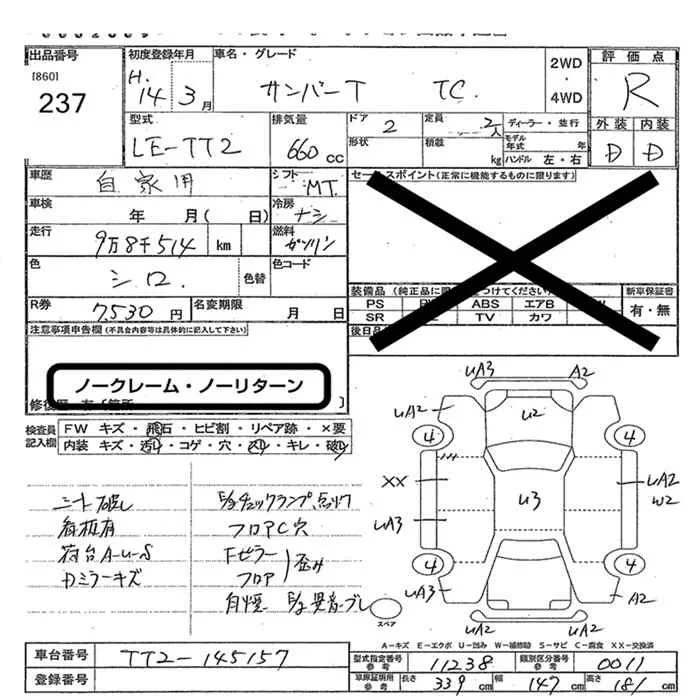 出品番号
[860]
237
初度登録年月
H.
14 3月
車名・グレード
サンバーT TC
2WD
・
4WD
評価点
R
外装 内装
D D
型式
LE-TT2
排気量
660cc
ドア
2
定員
2人
ディーラー・並行
形状
積載
kg
モデル年式 年
ハンドル 左・右
車歴
自家用
シフト
MT
セールスポイント(正常に機能するものに限ります)
車検
年 月( 日)
冷房
ナシ
走行
9万8千514 km
燃料
ガソリン
色
シロ
色替
色コード
R券
7,530円
名変期限
月 日
装備品(純正品に限
つけてください)
PS ABS エアB
SR TV カワ
新車保証書
有・無
後日品
注意事項申告欄(不具合内容等は具体的に記入して下さい)
ノークレーム・ノーリターン
修復歴
検査員記入欄
FW キズ・飛石・ヒビ割・リペア跡・×要
内装 キズ・汚れ・コゲ・穴・スレ・キレ・破れ
シート破レ
看板有
荷台A-U-S
Dミラーキズ
E/gチェックランプ点灯
フロアC穴
Fピラー
フロア
歪み
E/g異音・ブレ
UA3 A2
UA2 U2 A2
4 4
XX U3 UA2
W2
UA3
4 4
UA3 A2
UA2 UA2
スペア
A-キズ E-エクボ U-凹み W-補修跡 S-サビ C-腐食 XX-交換済
車台番号
TT2-145157
登録番号
型式指定番号
参考
11238
類別区分番号
参考
0011
車庫証明用
参考
長さ 339cm
幅 147cm
高さ 181cm